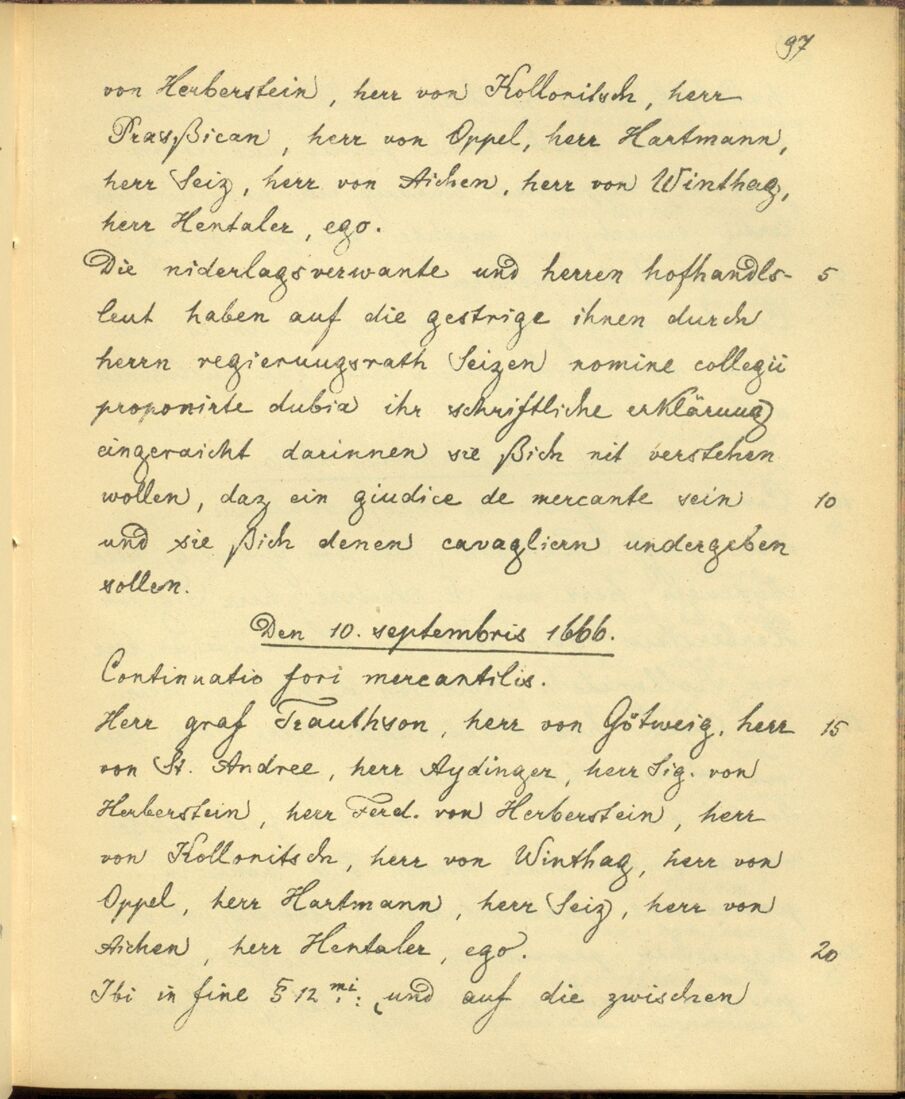 97
von Herberstein, herr von Kollonitsch, herr
Prasßican, herr von Oppel, herr Hartmann,
herr Seiz, herr von Aichen, herr von Winthag,
herr Hentaler, ego.
Die niderlagsverwante und herren hofhandls- 5
leut haben auf die gestrige ihnen durch
herrn regierungsrath Seizen nomine collegii
proponirte dubia ihr schriftliche erklärung
eingeraicht darinnen sie ßich nit verstehen
wollen, daz ein giudice de mercante sein 10
und sie ßich denen cavagliern undergeben
sollen.
Den 10. septembris 1666.
Continuatio fori mercantilis.
Herr graf Trauthson, herr von Götweig, herr 15
von St. Andree, herr Aydinger, herr Sig. von
Herberstein, herr Ferd. von Herberstein, herr
von Kollonitsch, herr von Winthag, herr von
Oppel, herr Hartmann, herr Seiz, herr von
Aichen, herr Hentaler, ego. 20
Ibi in fine § 12 mi.: (und auf die zwischen